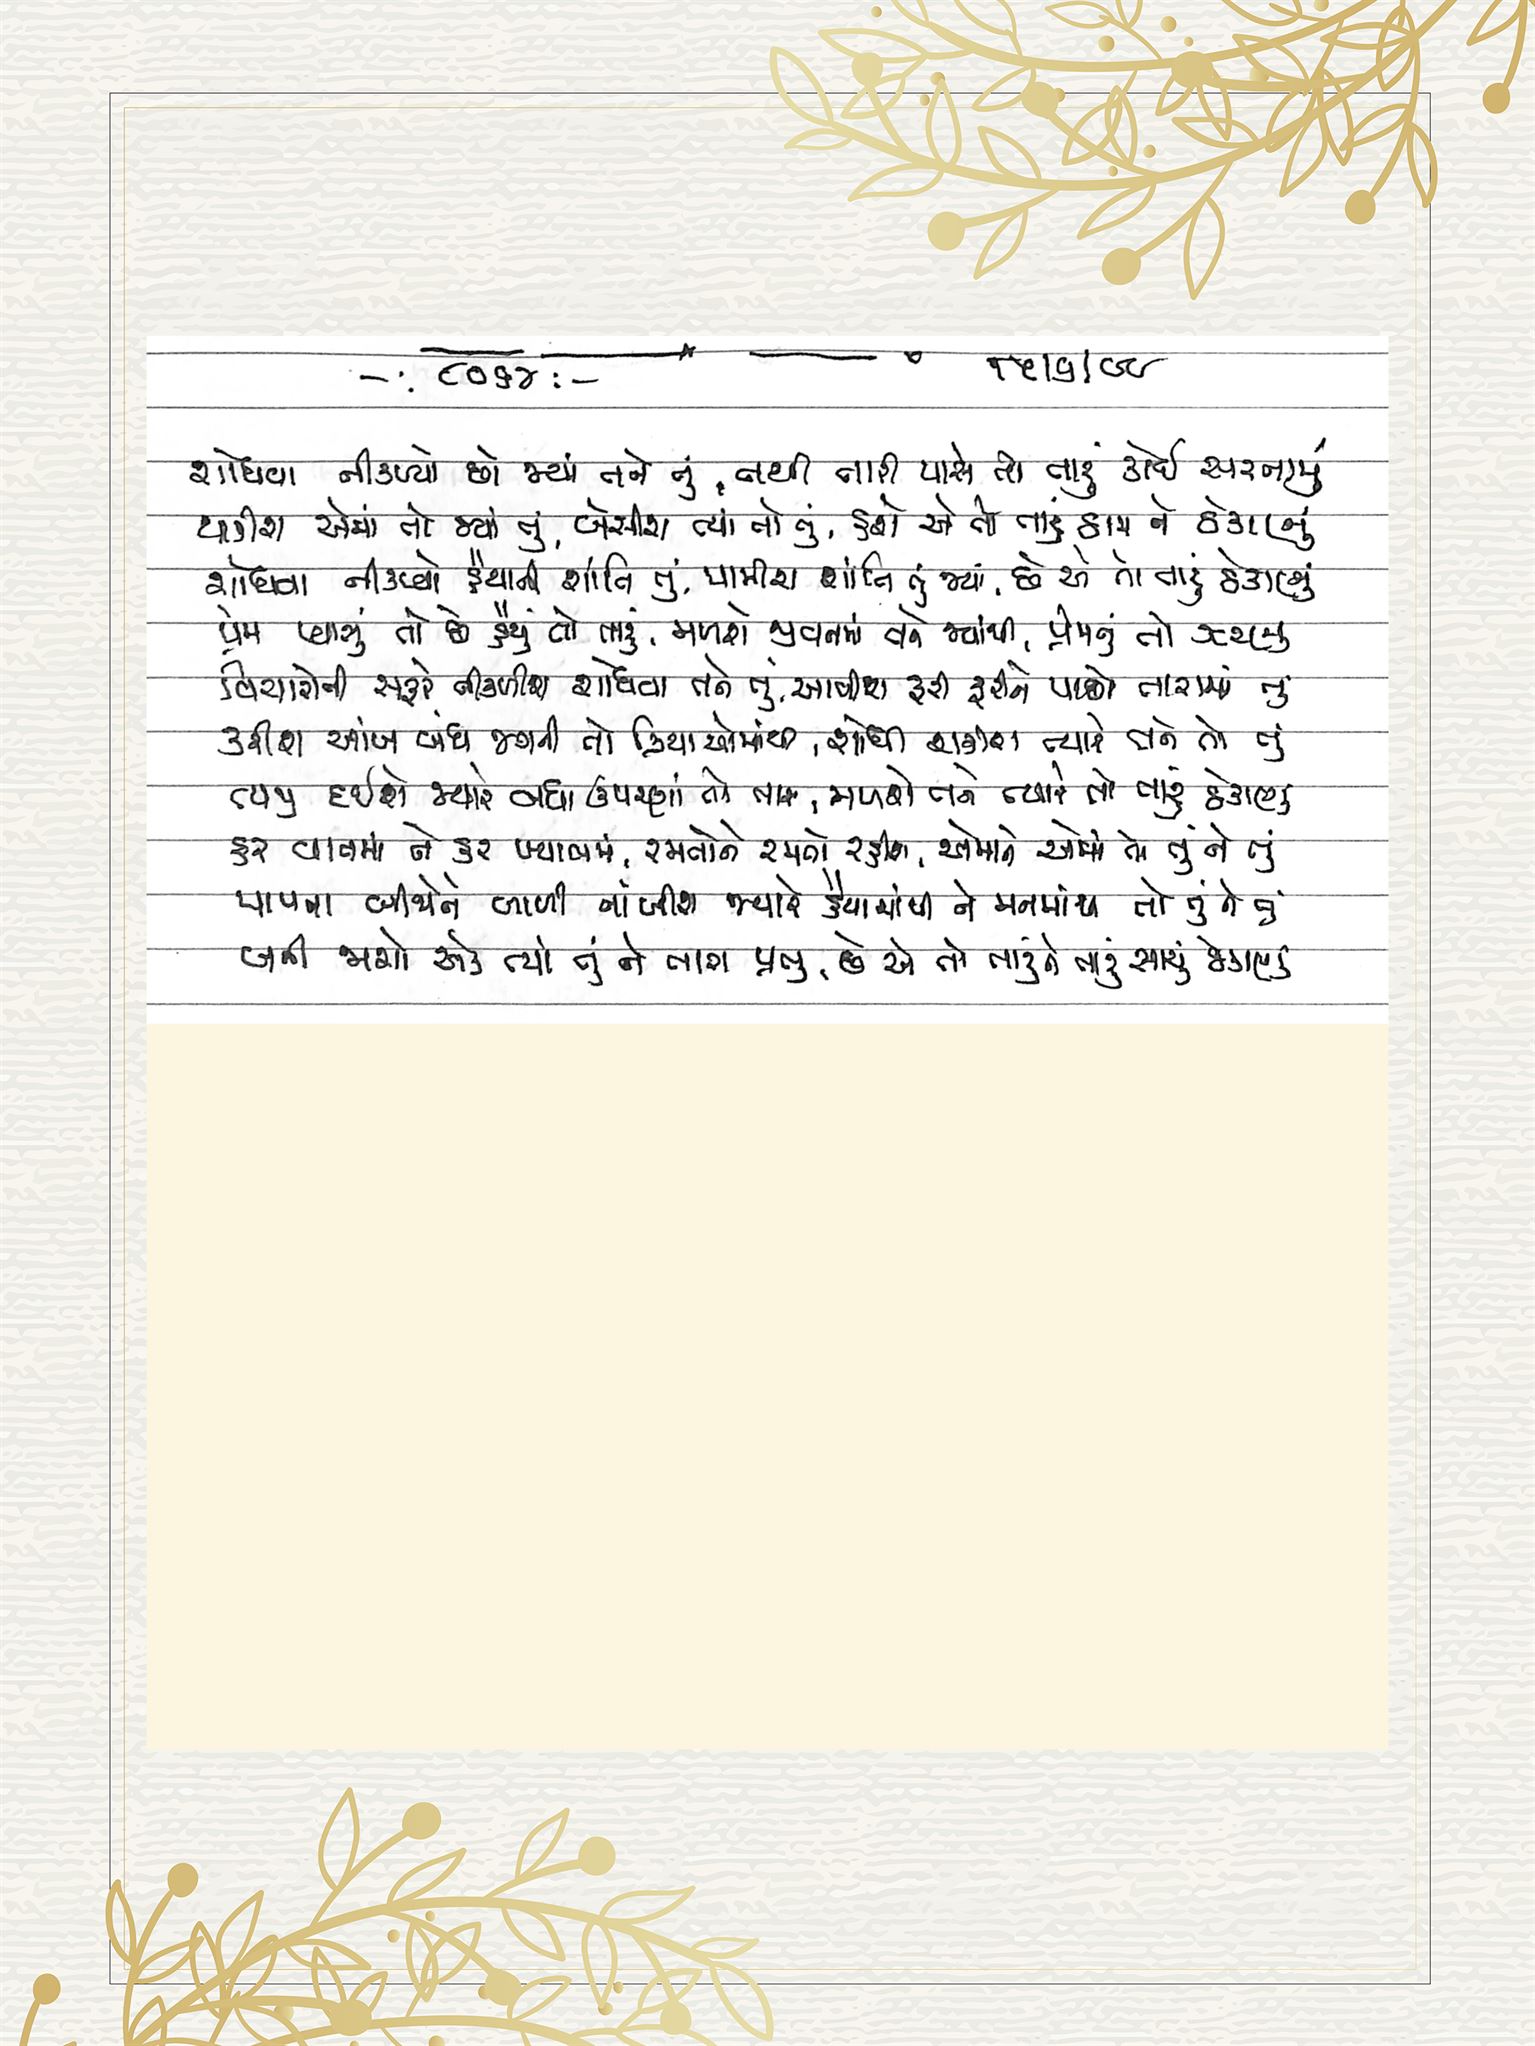 -: ૮૦૬૪ :-
શોધવા નીકળ્યો છો જ્યાં તને તું, નથી તારી પાસે તો તારું કોઈ સરનામું
થાકીશ એમાં તો જ્યાં તું, બેસીશ ત્યાં તો તું, હશે એ તો તારું ઠામ ને ઠેકાણું
શોધવા નીકળ્યો હૈયાની શાંતિ તું, પામીશ શાંતિ તું જ્યાં, છે એ તો તારું ઠેકાણું
પ્રેમ પ્યાસું તો છે હૈયું તો તારું, મળશે જીવનમાં તને જ્યાંથી, પ્રેમનું તો ઝરણું
વિચારોની સફરે નીકળીશ શોધવા તને તું, આવીશ ફરી ફરીને પાછો તારામાં તું
કરીશ આંખ બંધ જગની તો ક્રિયાઓમાંથી, શોધી શકીશ ત્યારે તને તો તું
ત્યજી દઈશે જ્યારે બધા ઉપરણાં તો તારા, મળશે તને ત્યારે તો તારું ઠેકાણું
હર વાતમાં ને હર ખ્યાલમાં, રમતોને રમતો રહીશ, એમાને એમાં તો તું ને તું
પાપના બીજોને બાળી નાંખીશ જ્યારે હૈયામાંથી ને મનમાંથી તો તું ને તું
બની જાશો એક ત્યાં તું ને તારા પ્રભુ, છે એ તો તારુંને તારું સાચું ઠેકાણું